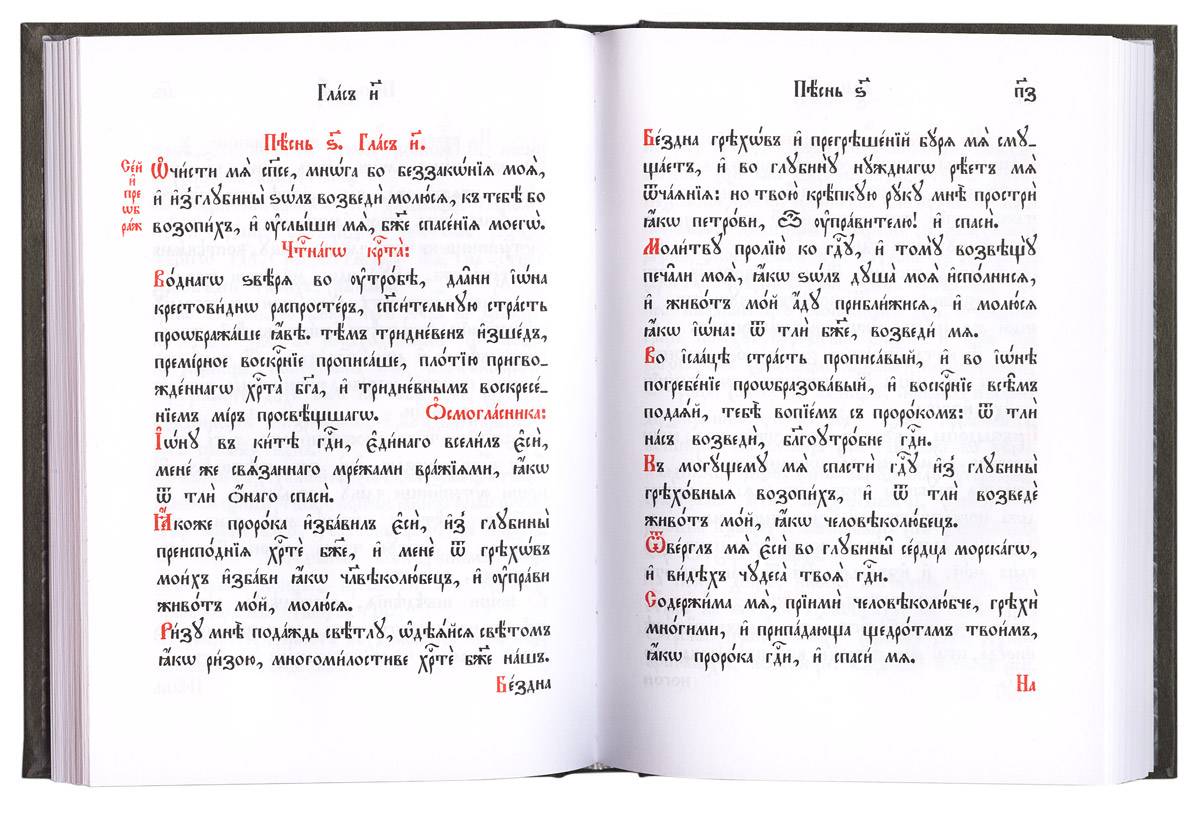 Гла́съ и҃
Пѣ́снь ѕ҃. Гла́съ и҃.
Се́й
и҆
пре
ѡб
ра́ж
Ѡ҆чи́сти мѧ̀ сп҃се, мнѡ́га бо беззакѡ́нїѧ моѧ̑,
и҆ и҆з̾ глꙋбины̀ ѕѡ́лъ возведѝ молю́сѧ, къ тебѣ́ бо
возопи́хъ, и҆ ᲂу҆слы́ши мѧ̀, бж҃е спасе́нїѧ моегѡ̀.
Чⷭ҇тна́гѡ крⷭ҇та̀:
Во́днагѡ ѕвѣ́рѧ во ᲂу҆тро́бѣ, дла̑ни і҆ѡ́на
крестови́днѡ распросте́ръ, сп҃си́тельнꙋю стра́сть
проѡбража́ше ꙗ҆́вѣ. тѣ́мъ тридне́венъ и҆зше́дъ,
преми́рное воскрⷭ҇нїе прописа́ше, пло́тїю пригво-
жде́ннагѡ хрⷭ҇та̀ бг҃а, и҆ тридне́внымъ воскресе́-
нїемъ мі́ръ просвѣ́щшагѡ. Ѻ҆смогла́сника:
І҆ѡ́нꙋ въ ки́тѣ гдⷭ҇и, є҆ди́наго всели́лъ є҆сѝ,
мене́ же свѧ́заннаго мре́жами вра́жїими, ꙗ҆́кѡ
ѿ тлѝ ѻ҆́наго спасѝ.
Ꙗ҆́коже проро́ка и҆зба́вилъ є҆сѝ, и҆з̾ глꙋбины̀
преиспо́днїѧ хрⷭ҇тѐ бж҃е, и҆ менѐ ѿ грѣхѡ́въ
мои́хъ и҆зба́ви ꙗ҆́кѡ чл҃вѣколю́бецъ, и҆ ᲂу҆пра́ви
живо́тъ мо́й, молю́сѧ.
Ри́зꙋ мнѣ̀ пода́ждь свѣ́тлꙋ, ѡ҆дѣѧ́йсѧ свѣ́томъ
ꙗ҆́кѡ ри́зою, многоми́лостиве хрⷭ҇тѐ бж҃е на́шъ.
Бе́здна
Пѣ́снь ѕ҃
п҃з
Бе́здна грѣхѡ́въ и҆ прегрѣше́нїй бꙋ́рѧ мѧ̀ смꙋ-
ща́етъ, и҆ во глꙋбинꙋ̀ нꙋ́жднагѡ рѣ́етъ мѧ̀
ѿча́ѧнїѧ: но твою̀ крѣ́пкꙋю рꙋ́кꙋ мнѣ̀ прострѝ
ꙗ҆́кѡ петро́ви, ѽ ᲂу҆прави́телю! и҆ спасѝ.
Моли́твꙋ пролїю̀ ко гдⷭ҇ꙋ, и҆ томꙋ̀ возвѣщꙋ̀
печа̑ли моѧ̑, ꙗ҆́кѡ ѕѡ́лъ дꙋша̀ моѧ̀ и҆спо́лнисѧ,
и҆ живо́тъ мо́й а҆́дꙋ прибли́жисѧ, и҆ молю́сѧ
ꙗ҆́кѡ і҆ѡ́на: ѿ тлѝ бж҃е, возведи́ мѧ.
Во і҆саа́цѣ стра́сть прописа́вый, и҆ во і҆ѡ́нѣ
погребе́нїе проѡбразова́вый, и҆ воскрⷭ҇нїе всѣ̑мъ
подаѧ́й, тебѣ̀ вопїе́мъ съ проро́комъ: ѿ тлѝ
на́съ возведѝ, бл҃гоꙋтро́бне гдⷭ҇и.
Къ могꙋ́щемꙋ мѧ̀ спастѝ гдⷭ҇ꙋ и҆з̾ глꙋбины̀
грѣхо́вныѧ возопи́хъ, и҆ ѿ тлѝ возведѐ
живо́тъ мо́й, ꙗ҆́кѡ человѣколю́бецъ.
Ѿве́рглъ мѧ̀ є҆сѝ во глꙋбины̑ се́рдца морска́гѡ,
и҆ ви́дѣхъ чꙋдеса̀ твоѧ̑ гдⷭ҇и.
Содержи́ма мѧ̀, прїимѝ человѣколю́бче, грѣхѝ
мно́гими, и҆ припа́дающа щедро́тамъ твои̑мъ,
ꙗ҆́кѡ проро́ка гдⷭ҇и, и҆ спаси́ мѧ.
На